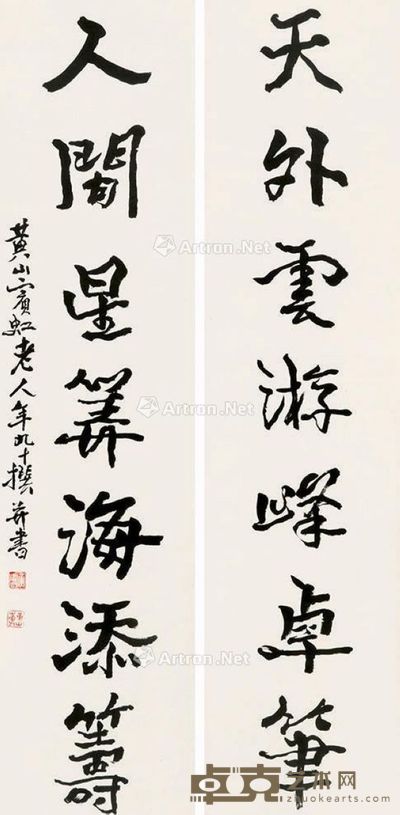 天外雲游峰卓筆
人間星筭海添籌
黃山賓虹老人年九十撰并書
Artron.Net
Artron.Net
Artron.Net
Artron.Net
Artron.Net
卓克艺术网
zhuokearts.com